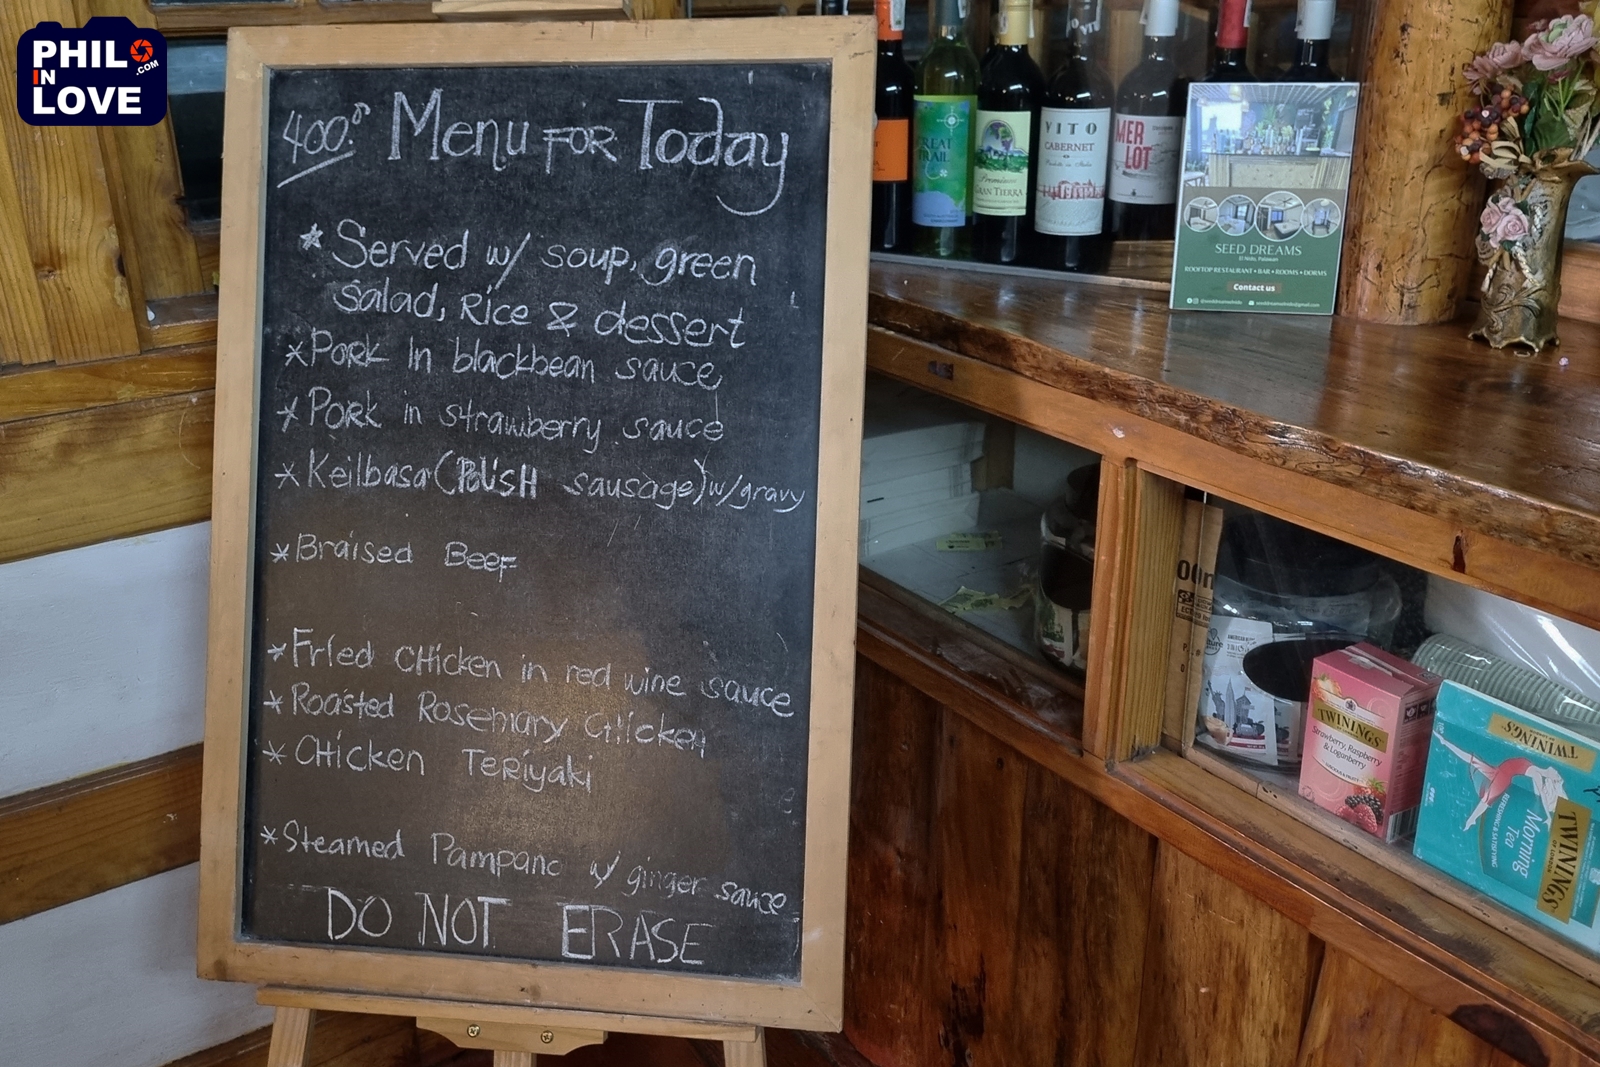 PHIL
IN
.COM
LOVE
400.00 Menu FOR Today
* Served w/ soup, green
salad, Rice & dessert
* Pork in blackbean sauce
* Pork in strawberry sauce
* Keilbasa (POLISH sausage) w/gravy
* Braised Beef
* Fried CHicken in red wine sauce
* Roasted Rosemary CHicken
* CHicken Teriyaki
* Steamed Pampano w/ ginger sauce
DO NOT ERASE
GREAT
TRAIL
Premium
GRAN TIERRA
VITO
CABERNET
MER
LOT
SEED DREAMS
El Nido, Palawan
ROOFTOP RESTAURANT • BAR • ROOMS • DORMS
Contact us
TWININGS
Strawberry, Raspberry
& Loganberry
TWININGS
Morning
Tea
REFRESHING & SATISFYING
TWININGS
OF LONDON